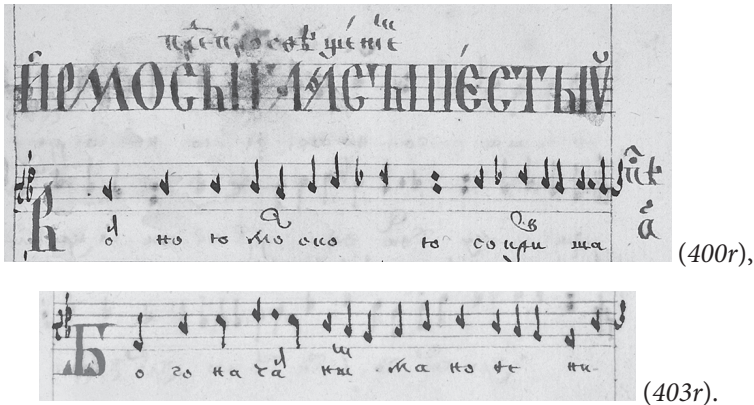 ИРМОСЫ ГЛАСЪ ШЕСТЫЙ
В оⷧ но ю моⷬ ско ю со криⷡ ша
а҃
(400r),
Б о го на чаⷧ ныⷨ ма но ве ни-
(403r).